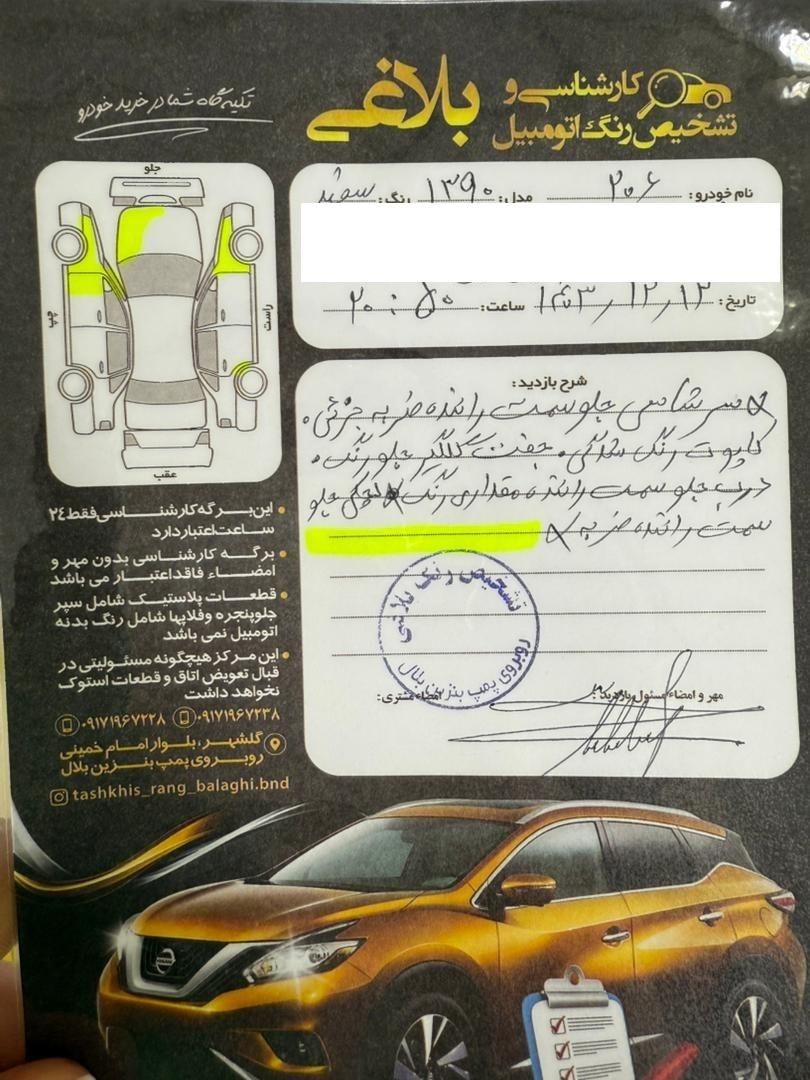 تکیه گاه شما در خرید خودرو
کارشناسی و
تشخیص رنگ اتومبیل
بلاغی
نام خودرو: ۲۰۶ مدل: ۱۳۹۰ رنگ: سفید
تاریخ: ۱۴۰۳/۱۲/۱۲ ساعت: ۲۰:۵۰
جلو
چپ
راست
عقب
شرح بازدید:
سر شاسی جلو سمت راننده ضربه جزئی.
کاپوت رنگ شدگی. جفت گلگیر جلو رنگ.
درب جلو سمت راننده مقداری رنگ لچکی جلو
سمت راننده ضربه
تشخیص رنگ بلاغی
روبروی پمپ بنزین بلال
مهر و امضاء مسئول بازدید: امضاء مشتری:
این برگه کارشناسی فقط ۲۴
ساعت اعتبار دارد
برگه کارشناسی بدون مهر و
امضاء فاقد اعتبار می باشد
قطعات پلاستیک شامل سپر
جلوپنجره وفلاپها شامل رنگ بدنه
اتومبیل نمی باشد
این مرکز هیچگونه مسئولیتی در
قبال تعویض اتاق و قطعات استوک
نخواهد داشت
۰۹۱۷۱۹۶۷۲۳۸ ۰۹۱۷۱۹۶۷۲۲۸
گلشهر، بلوار امام خمینی
روبروی پمپ بنزین بلال
tashkhis_rang_balaghi.bnd
NISSAN